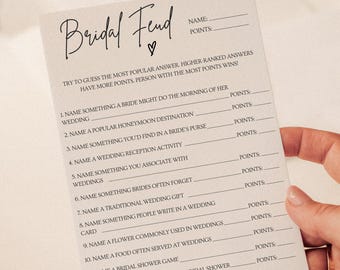 Bridal Feud
NAME:
POINTS:
TRY TO GUESS THE MOST POPULAR ANSWER. HIGHER-RANKED ANSWERS
HAVE MORE POINTS. PERSON WITH THE MOST POINTS WINS!
1. NAME SOMETHING A BRIDE MIGHT DO THE MORNING OF HER
WEDDING POINTS:
2. NAME A POPULAR HONEYMOON DESTINATION POINTS:
3. NAME SOMETHING YOU'D FIND IN A BRIDE'S PURSE POINTS:
4. NAME A WEDDING RECEPTION ACTIVITY POINTS:
5. NAME SOMETHING YOU ASSOCIATE WITH
WEDDINGS POINTS:
6. NAME SOMETHING BRIDES OFTEN FORGET POINTS:
7. NAME A TRADITIONAL WEDDING GIFT POINTS:
8. NAME SOMETHING PEOPLE WRITE IN A WEDDING
CARD POINTS:
9. NAME A FLOWER COMMONLY USED IN WEDDINGS POINTS:
10. NAME A FOOD OFTEN SERVED AT WEDDINGS POINTS:
NAME A BRIDAL SHOWER GAME POINTS:
SHOWER